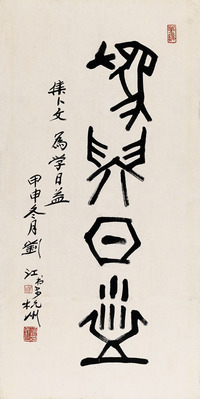 為學日益
集卜文 為学日益
甲申冬月劉江
书于杭州